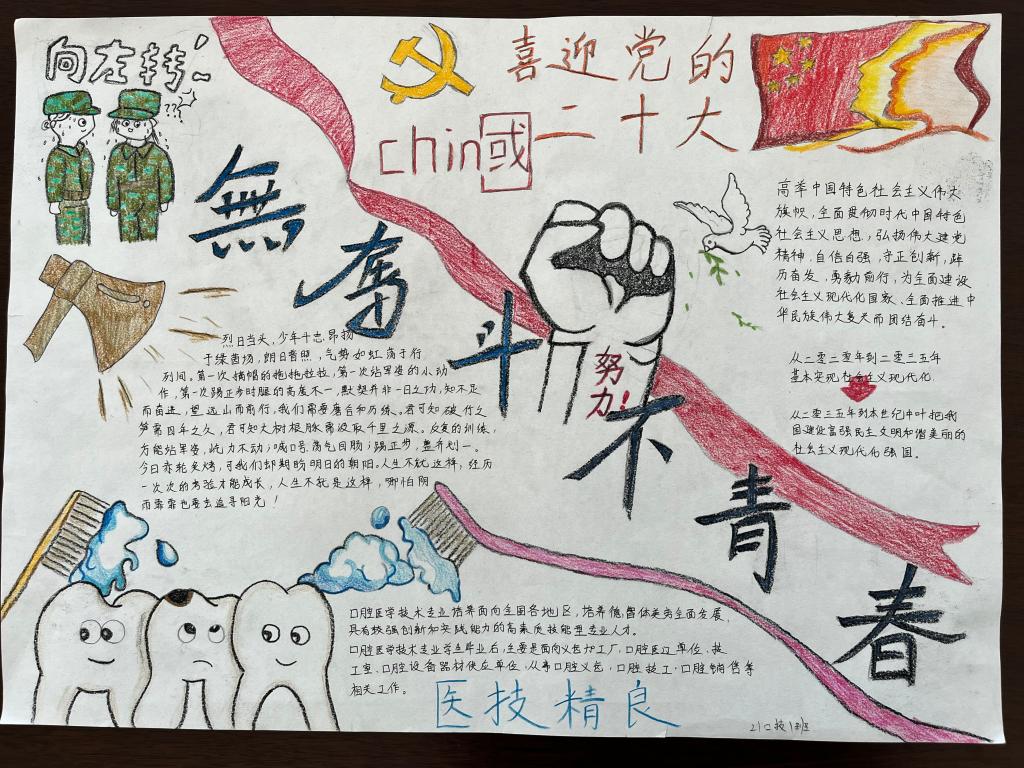 向左转！
???
喜迎党的
二十大
chin国
無奋斗不青春
努力!
高举中国特色社会主义伟大
旗帜，全面贯彻时代中国特色
社会主义思想，弘扬伟大建党
精神，自信自强，守正创新，踔
厉奋发，勇毅前行，为全面建设
社会主义现代化国家、全面推进中
华民族伟大复兴而团结奋斗。
从二零二零年到二零三五年
基本实现社会主义现代化
从二零三五年到本世纪中叶把我
国建设富强民主文明和谐美丽的
社会主义现代化强国。
烈日当头，少年斗志昂扬
于绿茵场，朗日普照，气势如虹荡于行
列间。第一次摘帽的拖拖拉拉，第一次站军姿的小动
作，第一次踢正步时腿的高度不一，默契并非一日之功，知不足
而奋进，望远山而前行，我们需要磨合和历练。君可知破竹之
笋需四年之久，君可知大树根脉需汲取千里之源。反复的训练，
方能站军姿，屹力不动；喊口号荡气回肠；踢正步，整齐划一。
今日赤轮炙烤，可我们却期盼明日的朝阳。人生不就这样，经历
一次次的考验才能成长，人生不就是这样，哪怕阴
雨霏霏也要去追寻阳光！
口腔医学技术专业培养面向全国各地区，培养德智体美劳全面发展，
具有较强创新和实践能力的高素质技能型专业人才。
口腔医学技术专业学生毕业后，主要是面向义齿加工厂，口腔医辽单位、技
工室、口腔设备器材供应单位，从事口腔义齿，口腔技工，口腔销售等
相关工作。
医技精良
21口技1班